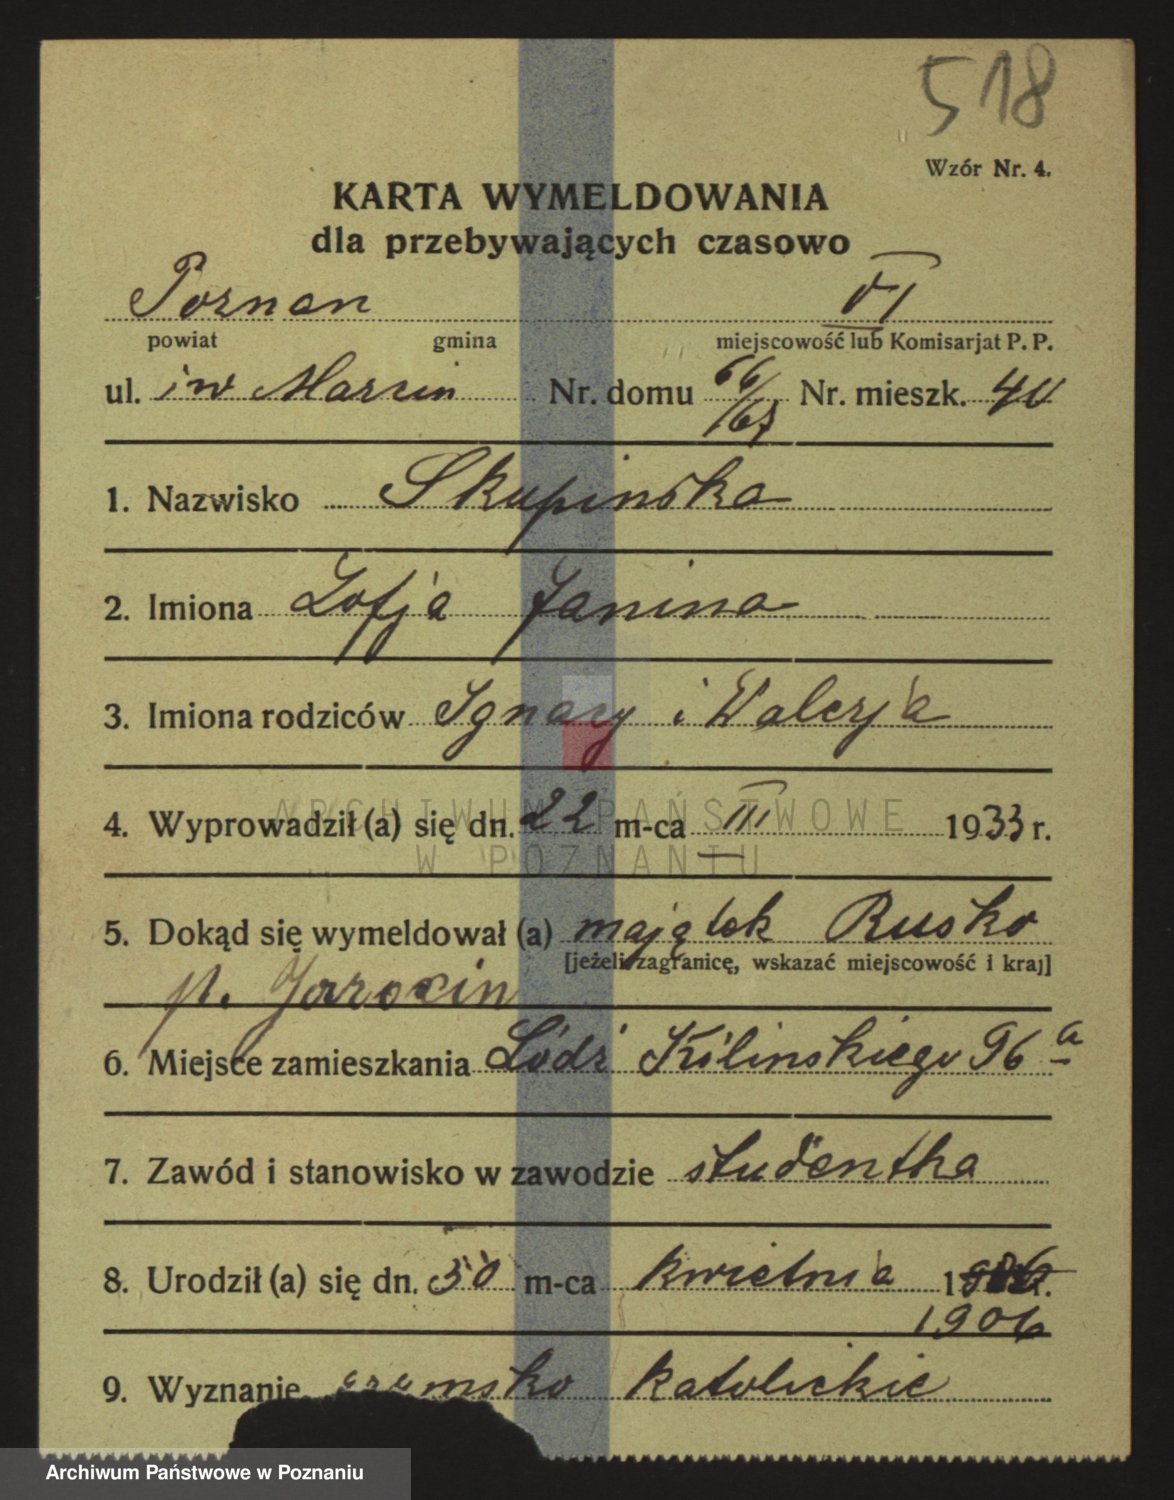 518
Wzór Nr. 4.
KARTA WYMELDOWANIA
dla przebywających czasowo
Poznan VI
powiat gmina miejscowość lub Komisarjat P. P.
ul. św Marcin Nr. domu 66/67 Nr. mieszk. 40
1. Nazwisko Skupinska
2. Imiona Zofja Janina
3. Imiona rodziców Ignacy i Walerja
4. Wyprowadził (a) się dn. 22 m-ca III 1933 r.
ARCHIWUM PAŃSTWOWE
W POZNANIU
5. Dokąd się wymeldował (a) majątek Rusko
[jeżeli zagranicę, wskazać miejscowość i kraj]
p. Jarocin
6. Miejsce zamieszkania Łódź Kilinskiego 96 a
7. Zawód i stanowisko w zawodzie studentka
8. Urodził (a) się dn. 30 m-ca kwietnia 19 r.
1906
9. Wyznanie rzymsko katolickie
Archiwum Państwowe w Poznaniu